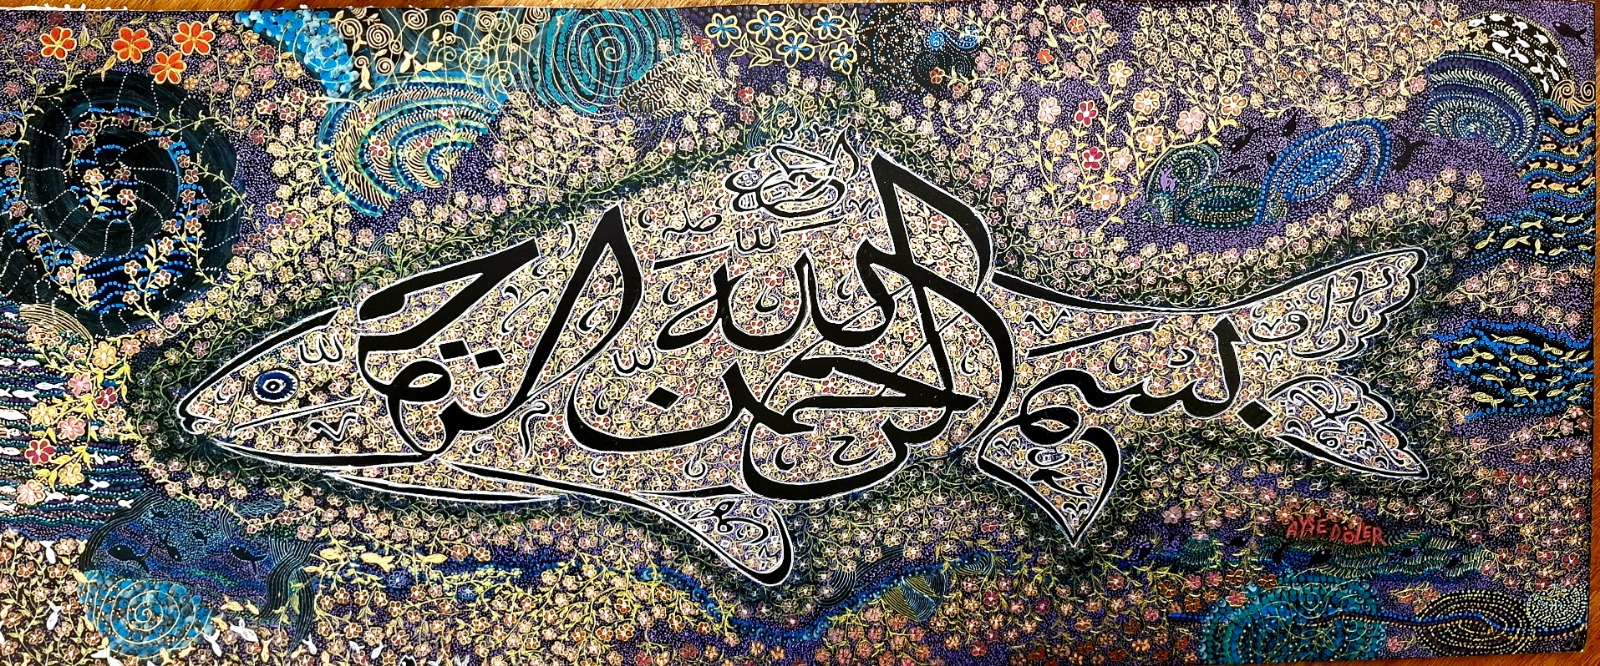 بسم الله الرحمن الرحيم
AYŞE DÖLER